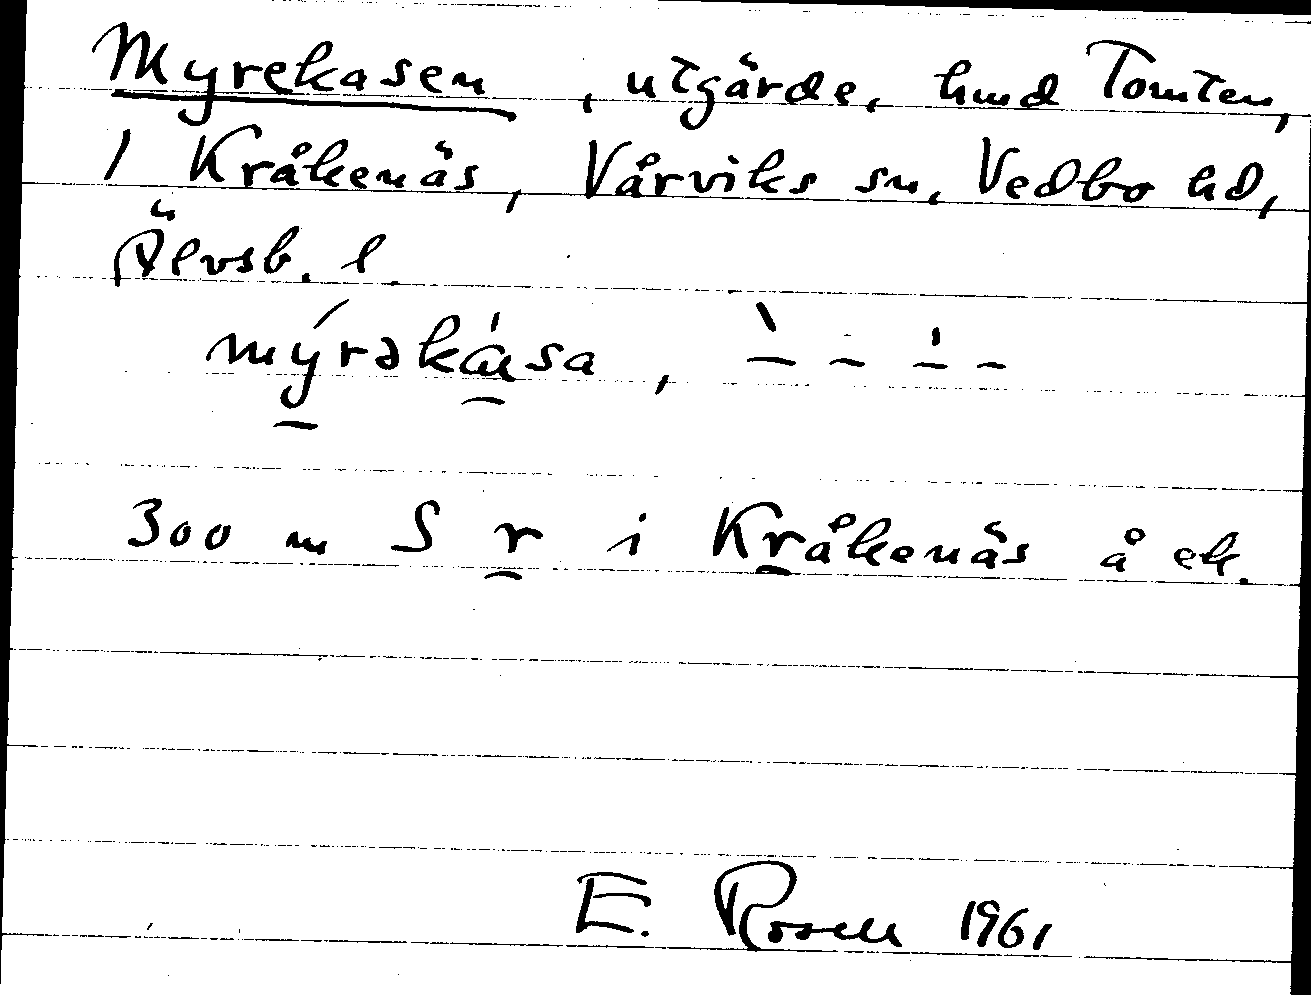 Myrekasen, utgärde, hmd Tomten,
1 Kråkenäs, Vårviks sn, Vedbo hd,
Älvsb. l.
mýrəkása, 
300 m S r i Kråkenäs å ek.
E. Rosell 1961